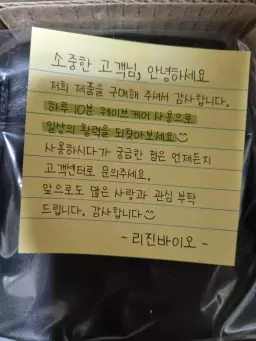 소중한 고객님, 안녕하세요
저희 제품을 구매해 주셔서 감사합니다.
하루 10분 웨이브케어 사용으로
일상의 활력을 되찾아보세요
사용하시다가 궁금한 점은 언제든지
고객센터로 문의주세요.
앞으로도 많은 사랑과 관심 부탁
드립니다. 감사합니다
- 리진바이오 -